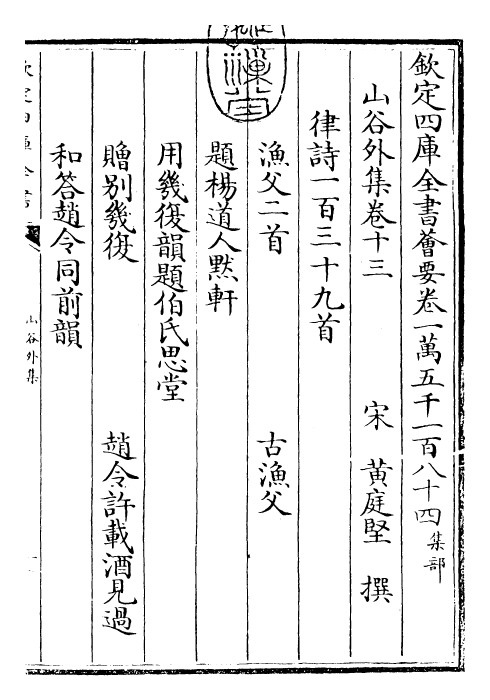 欽定四庫全書薈要卷一萬五千一百八十四集部
山谷外集卷十三
宋 黃庭堅 撰
律詩一百三十九首
漁父二首 古漁父
題楊道人默軒
用幾復韻題伯氏思堂
贈别幾復 趙令許載酒見過
和答趙令同前韻
山谷外集